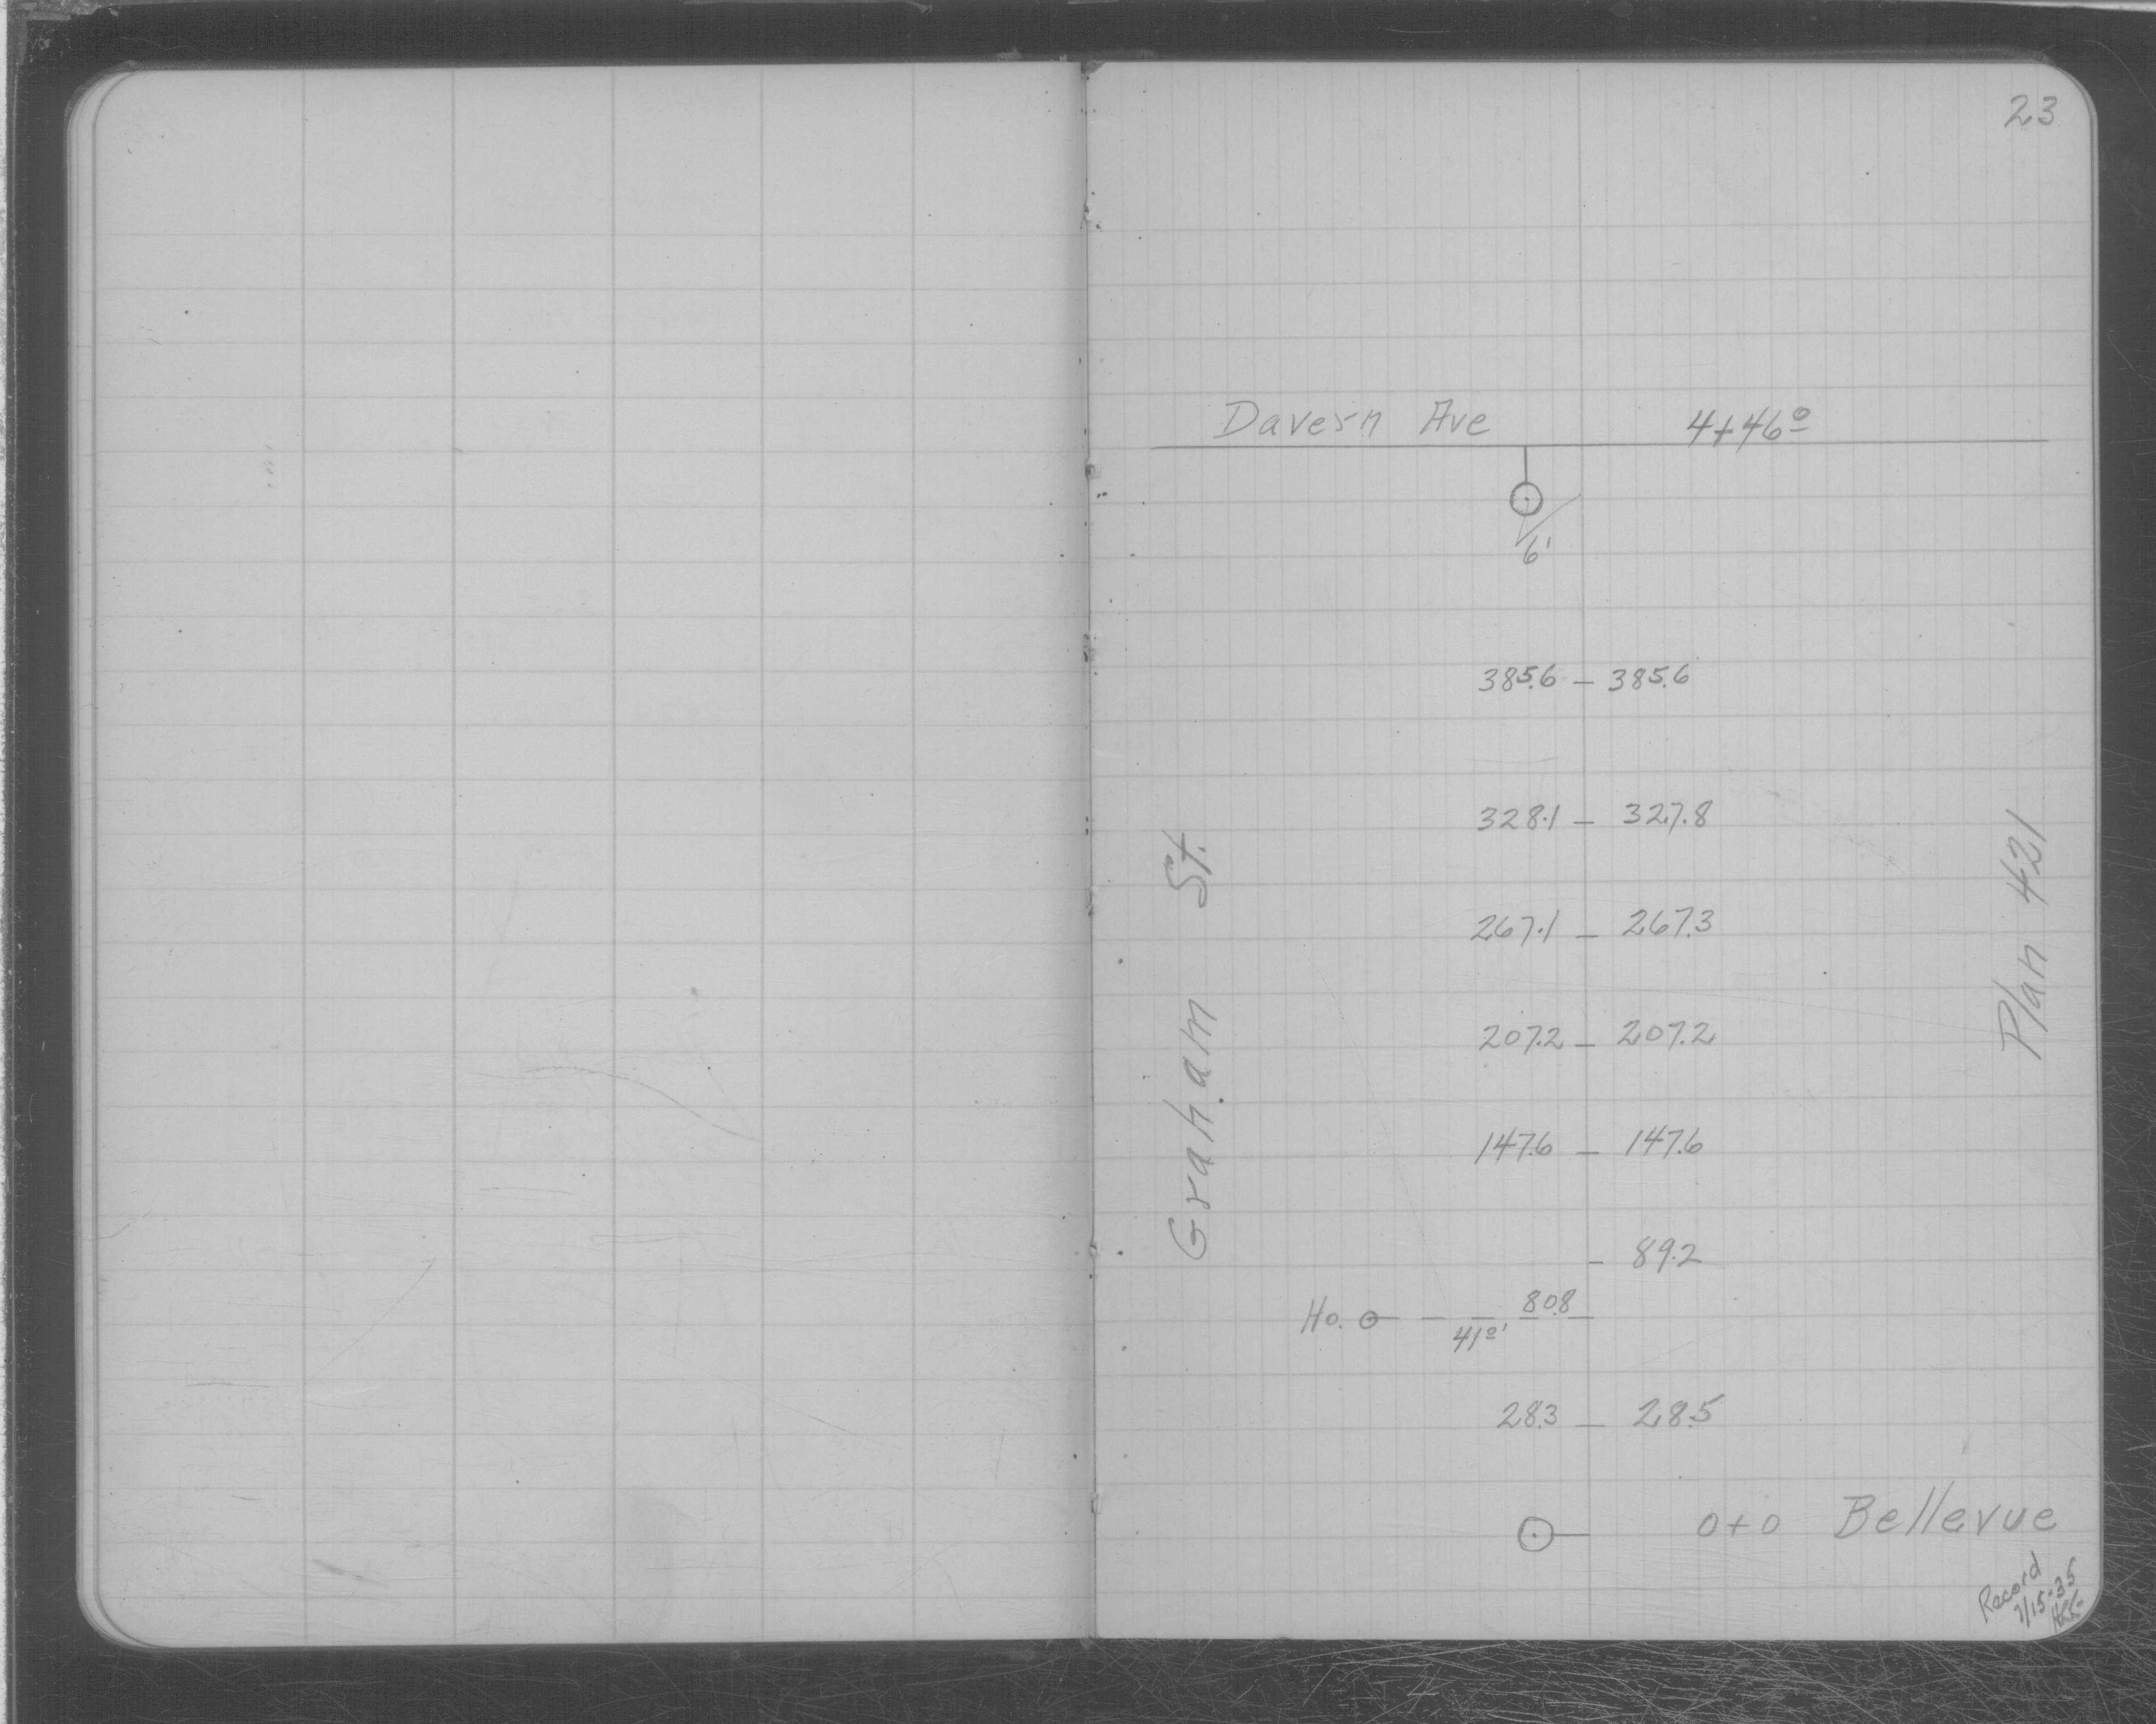 23
Davern Ave 4+46º
6'
385.6 – 385.6
328.1 – 327.8
267.1 – 267.3
207.2 – 207.2
147.6 – 147.6
– 89.2
Ho. 80.8
41º'
28.3 – 28.5
0+0 Bellevue
Graham St.
Plan 421
Record
7/15-35